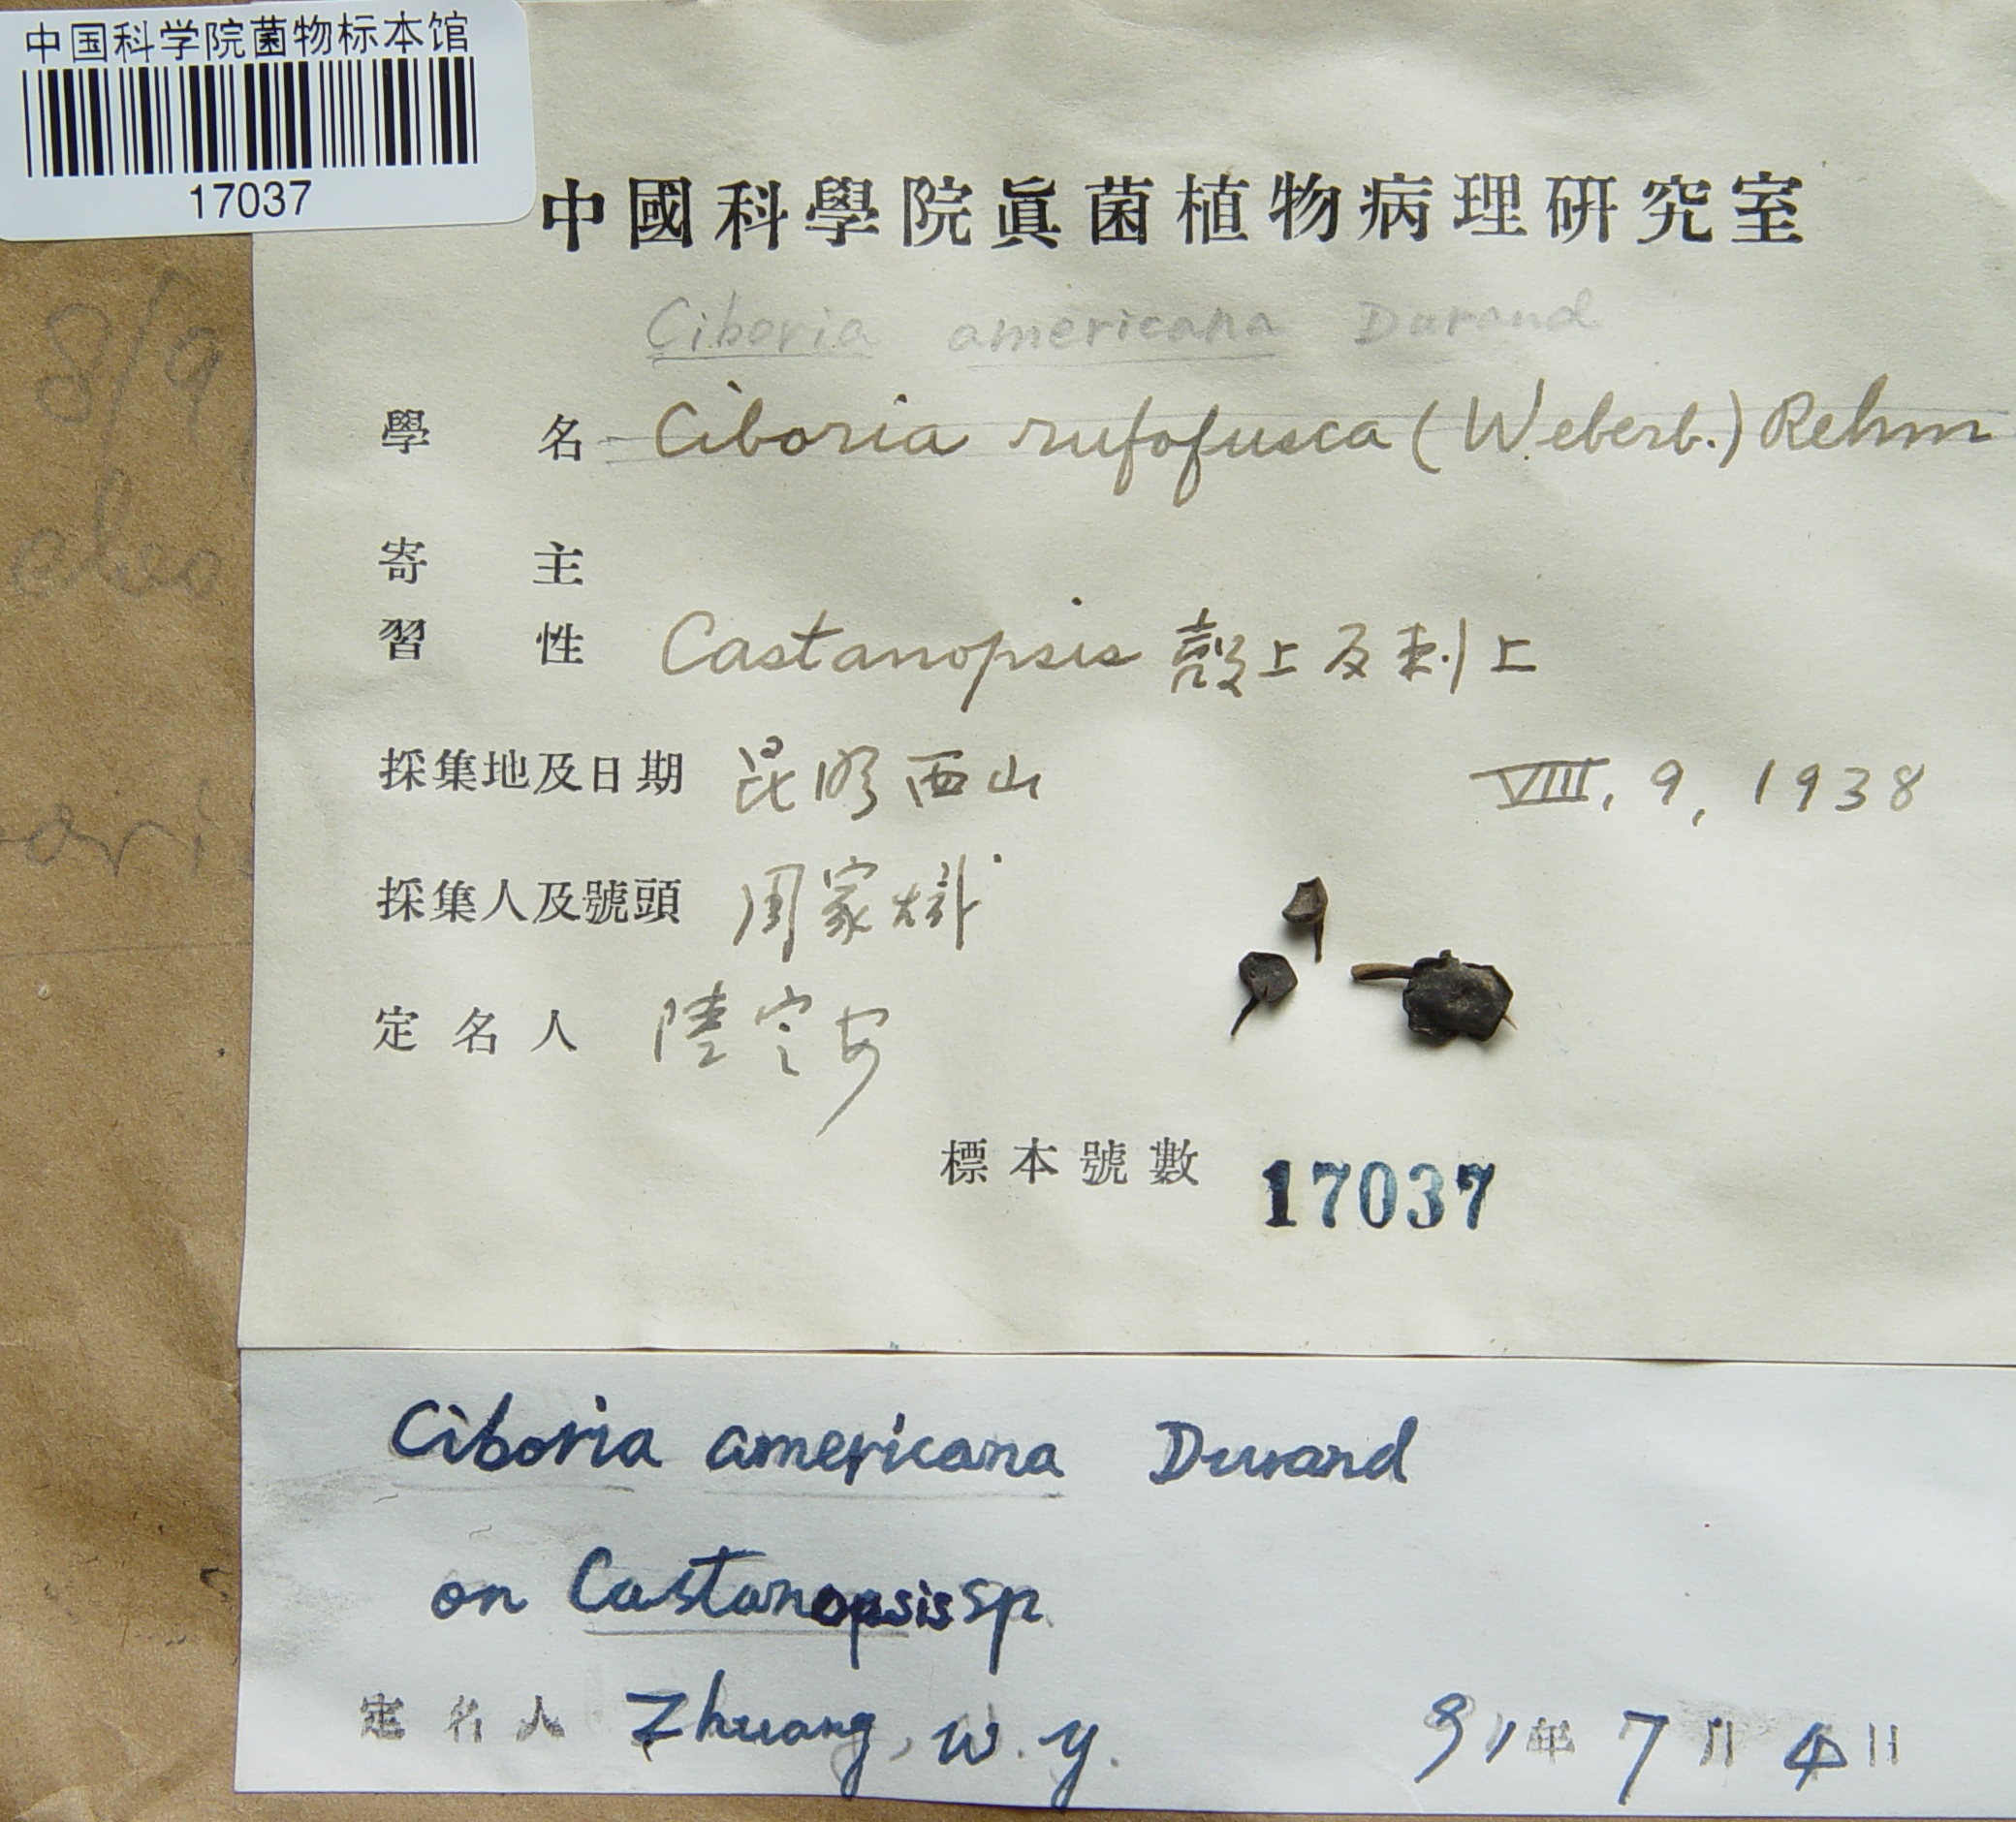 中国科学院菌物标本馆
17037
中國科學院眞菌植物病理研究室
Ciboria americana Durand
學名 Ciboria rufofusca (Weberb.) Rehm
寄主
習性 Castanopsis 殼上及刺上
採集地及日期 昆明西山 VIII, 9, 1938
採集人及號頭 周家炽
定名人 陸定安
標本號數 17037
Ciboria americana Durand
on Castanopsis sp.
定名人 Zhuang, W. Y. 91年7月4日
8/9